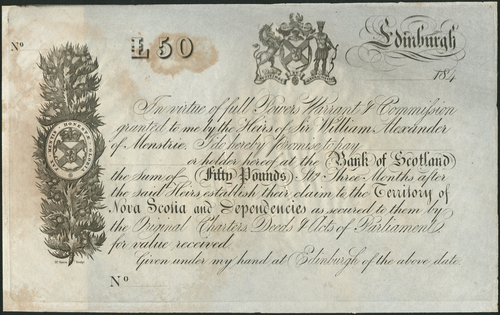 No
£50
Edinburgh
184
In virtue of full Powers Warrant & Commission
granted to me by the Heirs of Sir William Alexander
of Menstrie, I do hereby promise to pay
or holder hereof at the Bank of Scotland
the Sum of Fifty Pounds Stg Three Months after
the said Heirs establish their claim to the Territory of
Nova Scotia and Dependencies as secured to them by
the Original Charters, Deeds & Acts of Parliament,
for value received.
Given under my hand at Edinburgh of the above date
No